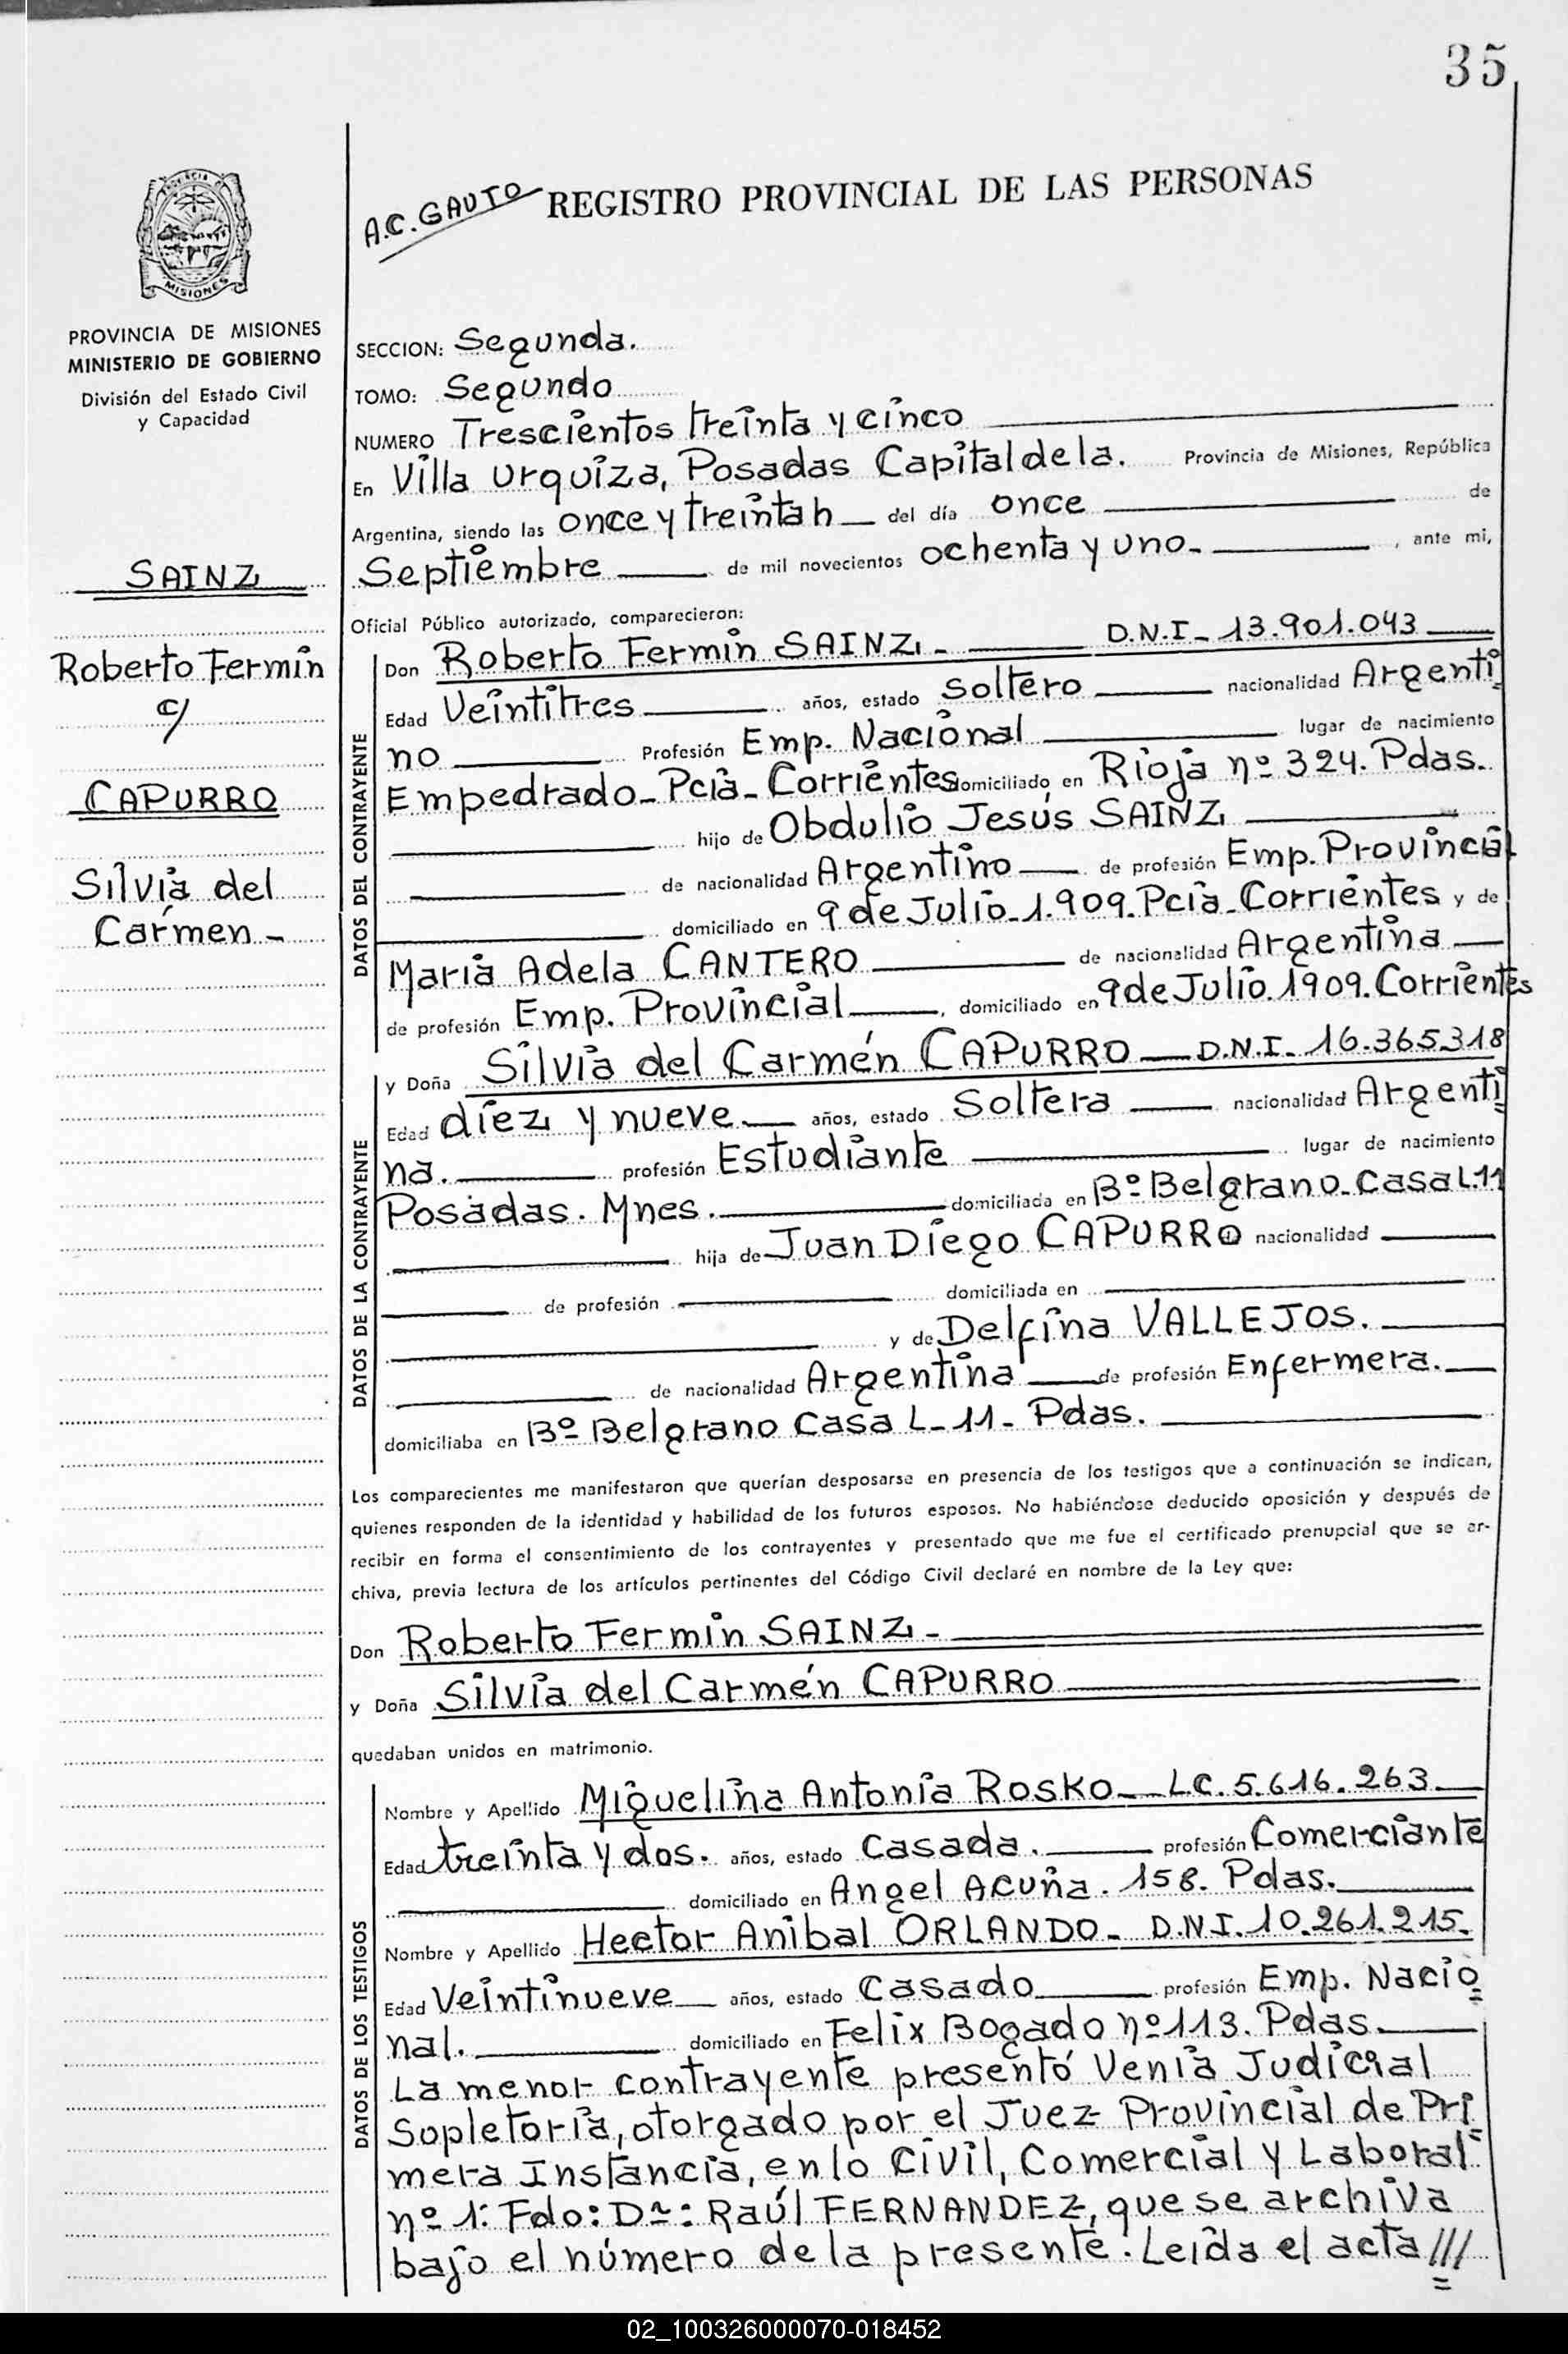 35
A.C. GAUTO
REGISTRO PROVINCIAL DE LAS PERSONAS
MISIONES
PROVINCIA DE MISIONES
MINISTERIO DE GOBIERNO
División del Estado Civil
y Capacidad
SAINZ
Roberto Fermin
c/
CAPURRO
Silvia del
Carmen -
SECCION: Segunda.
TOMO: Segundo
NUMERO Trescientos treinta y cinco
En Villa Urquiza, Posadas Capital de la. Provincia de Misiones, República
Argentina, siendo las once y treinta h del día once de
Septiembre de mil novecientos ochenta y uno. , ante mi,
Oficial Público autorizado, comparecieron:
DATOS DEL CONTRAYENTE
Don Roberto Fermin SAINZ - D.N.I - 13.901.043
Edad Veintitres años, estado Soltero nacionalidad Argenti
no Profesión Emp. Nacional lugar de nacimiento
Empedrado - Pcia - Corrientes domiciliado en Rioja nº 324. Pdas.
hijo de Obdulio Jesús SAINZ
de nacionalidad Argentino de profesión Emp. Provincial
domiciliado en 9 de Julio - 1.909. Pcia - Corrientes y de
Maria Adela CANTERO de nacionalidad Argentina
de profesión Emp. Provincial , domiciliado en 9 de Julio. 1909. Corrientes
DATOS DE LA CONTRAYENTE
y Doña Silvia del Carmén CAPURRO D.N.I. 16.365.318
Edad diez y nueve años, estado Soltera nacionalidad Argenti
na. profesión Estudiante lugar de nacimiento
Posadas. Mnes. domiciliada en Bº Belgrano - Casa L.11
hija de Juan Diego CAPURRO nacionalidad
de profesión domiciliada en
y de Delfina VALLEJOS.
de nacionalidad Argentina de profesión Enfermera.
domiciliaba en Bº Belgrano Casa L - 11 - Pdas.
Los comparecientes me manifestaron que querían desposarse en presencia de los testigos que a continuación se indican,
quienes responden de la identidad y habilidad de los futuros esposos. No habiéndose deducido oposición y después de
recibir en forma el consentimiento de los contrayentes y presentado que me fue el certificado prenupcial que se ar-
chiva, previa lectura de los artículos pertinentes del Código Civil declaré en nombre de la Ley que:
Don Roberto Fermin SAINZ -
y Doña Silvia del Carmén CAPURRO
quedaban unidos en matrimonio.
DATOS DE LOS TESTIGOS
Nombre y Apellido Miguelina Antonia ROSKO - LC. 5.616.263
Edad treinta y dos. años, estado Casada. profesión Comerciante
domiciliado en Angel Acuña. 158. Pdas.
Nombre y Apellido Hector Anibal ORLANDO - D.N.I. 10.261.215.
Edad Veintinueve años, estado Casado profesión Emp. Nacio
nal. domiciliado en Felix Bogado nº 113. Pdas.
La menor contrayente presentó Venia Judicial
Supletoria, otorgado por el Juez Provincial de Pri
mera Instancia, en lo Civil, Comercial y Laboral
nº 1: Fdo: Dr: Raúl FERNANDEZ, que se archiva
bajo el número de la presente. Leida el acta ///
02_100326000070-018452